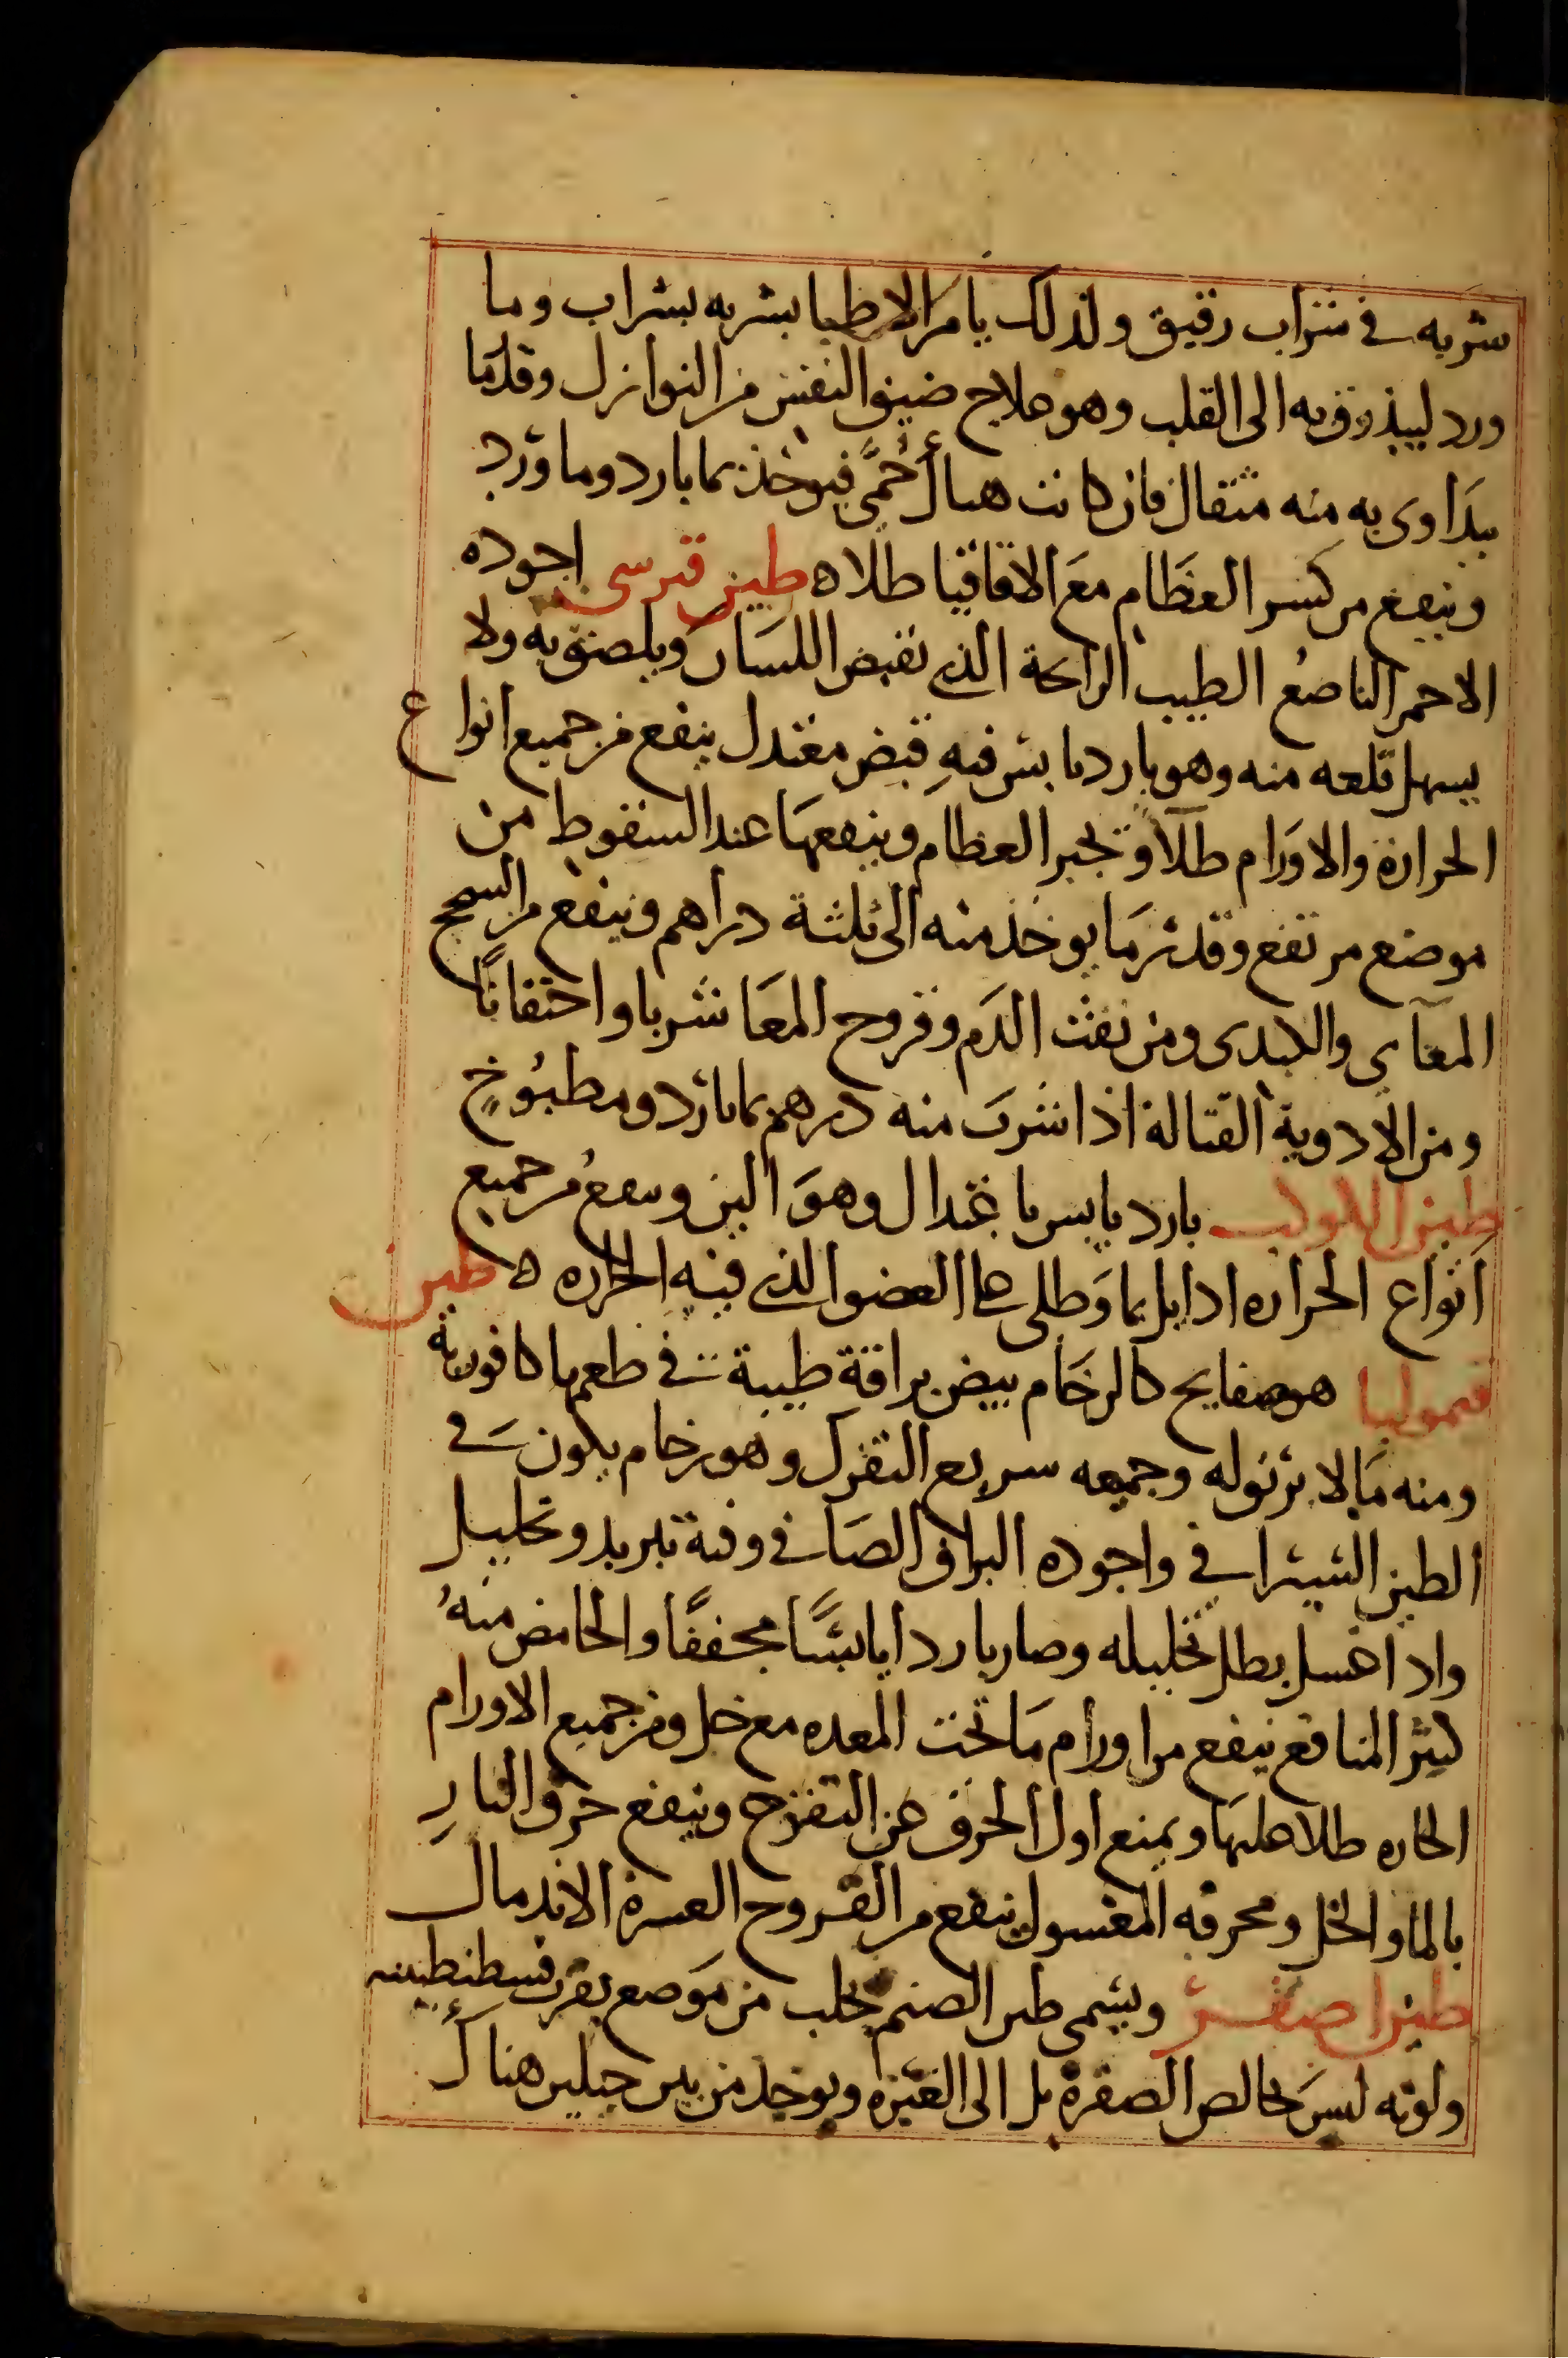 شربه في شراب رقيق ولذلك يامر الاطبا بشربه بشراب وما
ورد ليبذرق به الى القلب وهو علاج ضيق النفس من النوازل وقدر ما
يداوى به منه مثقال فان كانت هناك حُمَّى فيوخذ بما بارد وما ورد
وينفع من كسر العظام مع الاقاقيا طلاه طين قبرسي اجوده
الاحمر الناصع الطيب الرائحة الذي يقبض اللسان ويلصق به ولا
يسهل قلعه منه وهو بارد يابس فيه قبض معتدل ينفع من جميع انواع
الحرارة والاورام طلآ ويجبر العظام وينفعها عند السقوط من
موضع مرتفع وقدر ما يوخذ منه الى ثلثة دراهم وينفع من السحج
المعآيى والكبدى ومن نفث الدم وقروح المعا شربا واحتقانًا
ومن الادوية القتالة اذا شرب منه درهم بما بارد ومطبُوخٍ
طين الكوكب بارد يابس باعتدال وهو الين وينفع من جميع
انواع الحراره اذا بل بما وطلى على العضو الذي فيه الحراره ه طين
قيموليا هو صفايح كالرخام بيض براقة طيبة في طعمها كافورية
ومنه ما لا بريق له وجميعه سريع التفرك وهو رخام يكون في
الطين الشيرافي واجوده البراق الصافي وفيه تبريد وتحليل
واذا غسل بطل تحليله وصار باردا يابسًا مجففًا والحامض منهُ
كثير المنافع ينفع من اورام ما تحت المعده مع خل ومن جميع الاورام
الحاره طلا عليها ويمنع اول الحرق عن التقرح وينفع حرق النارِ
بالما والخل ومحرقه المغسول ينفع من القروح العسرة الاندمال
طين اصفر ويسمى طين الصنم يجلب من موضع بقرب قسطنطينيه
ولونه ليس بخالص الصفرة بل الى الغبرة ويوخذ من بين جبلين هناك